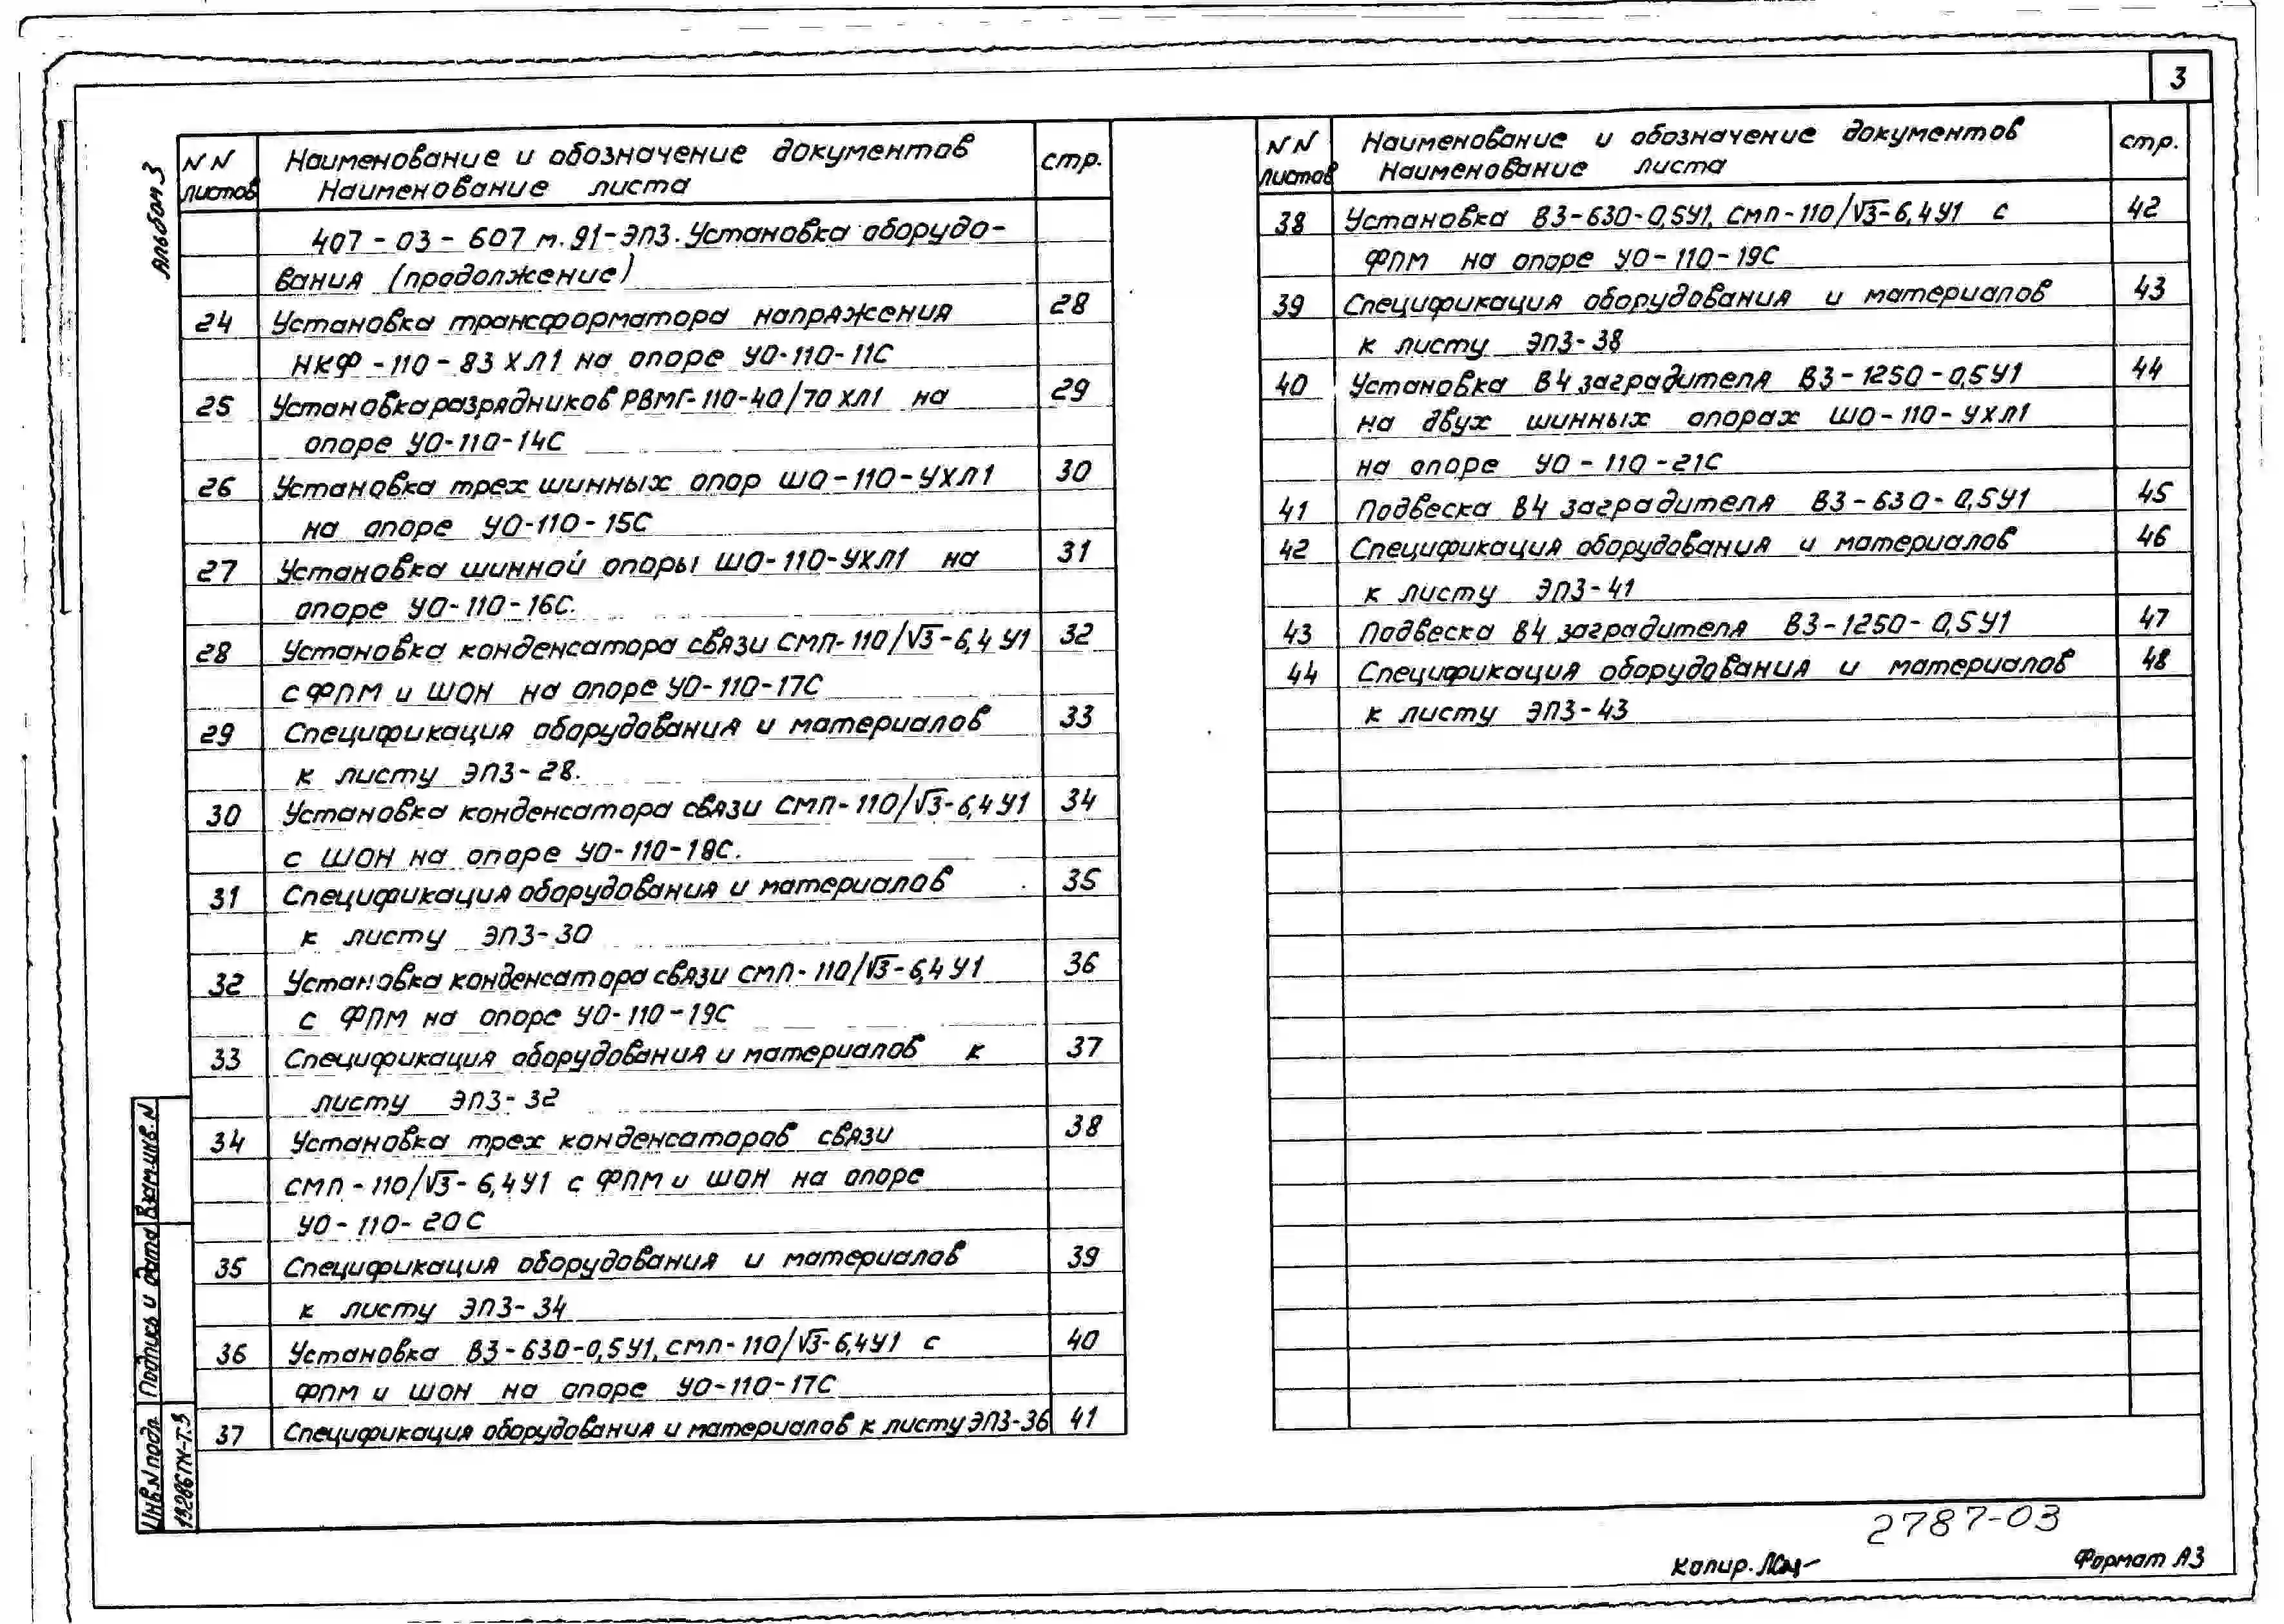 3
Альбом 3
NN листов
Наименование и обозначение документов
Наименование листа
стр.
407-03-607 м.91-ЭП3. Установка оборудо-
вания (продолжение)
24 Установка трансформатора напряжения 28
НКФ-110-83 ХЛ1 на опоре УО-110-11С
25 Установка разрядников РВМГ-110-40/70 ХЛ1 на 29
опоре УО-110-14С
26 Установка трех шинных опор ШО-110-УХЛ1 30
на опоре УО-110-15С
27 Установка шинной опоры ШО-110-УХЛ1 на 31
опоре УО-110-16С.
28 Установка конденсатора связи СМП-110/√3-6,4 У1 32
с ФПМ и ШОН на опоре УО-110-17С
29 Спецификация оборудования и материалов 33
к листу ЭП3-28.
30 Установка конденсатора связи СМП-110/√3-6,4 У1 34
с ШОН на опоре УО-110-18С.
31 Спецификация оборудования и материалов 35
к листу ЭП3-30
32 Установка конденсатора связи СМП-110/√3-6,4 У1 36
с ФПМ на опоре УО-110-19С
33 Спецификация оборудования и материалов к 37
листу ЭП3-32
34 Установка трех конденсаторов связи 38
СМП-110/√3-6,4 У1 с ФПМ и ШОН на опоре
УО-110-20С
35 Спецификация оборудования и материалов 39
к листу ЭП3-34
36 Установка ВЗ-630-0,5У1, СМП-110/√3-6,4У1 с 40
ФПМ и ШОН на опоре УО-110-17С
37 Спецификация оборудования и материалов к листу ЭП3-36 41
NN листов
Наименование и обозначение документов
Наименование листа
стр.
38 Установка ВЗ-630-0,5У1, СМП-110/√3-6,4У1 с 42
ФПМ на опоре УО-110-19С
39 Спецификация оборудования и материалов 43
к листу ЭП3-38
40 Установка ВЧ заградителя ВЗ-1250-0,5У1 44
на двух шинных опорах ШО-110-УХЛ1
на опоре УО-110-21С
41 Подвеска ВЧ заградителя ВЗ-630-0,5У1 45
42 Спецификация оборудования и материалов 46
к листу ЭП3-41
43 Подвеска ВЧ заградителя ВЗ-1250-0,5У1 47
44 Спецификация оборудования и материалов 48
к листу ЭП3-43
Взам.инв.N
Подпись и дата
Инв.N подл.
13286тм-т.3
2787-03
Копир.
Формат А3